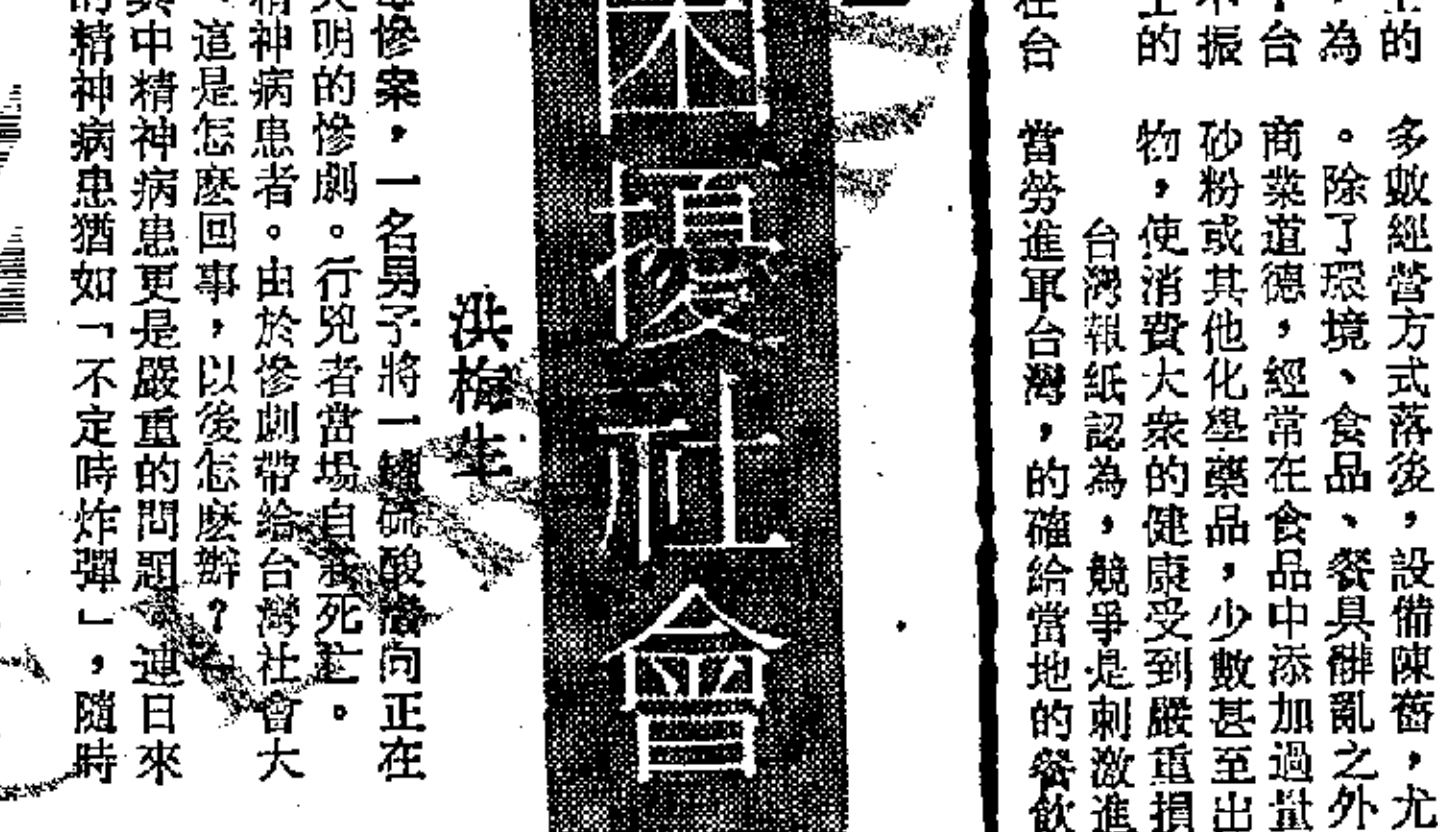 的
多數經營方式落後，設備陳舊，尤
，為
。除了環境、食品、餐具髒亂之外
台
商業道德，經常在食品中添加過量
振
砂粉或其他化學藥品，少數甚至出
的
物，使消費大衆的健康受到嚴重損
台灣報紙認為，競爭是刺激進
在台
當勞進軍台灣，的確給當地的餐飲
困擾社會
洪梅生
慘案，一名男子將一 硫酸 向正在
明的慘劇。行兇者當場自 死亡。
精神病患者。由於慘劇帶給台灣社會大
這是怎麽回事，以後怎麽辦？
其中精神病患更是嚴重的問題。連日來
的精神病患猶如「不定時炸彈」，隨時